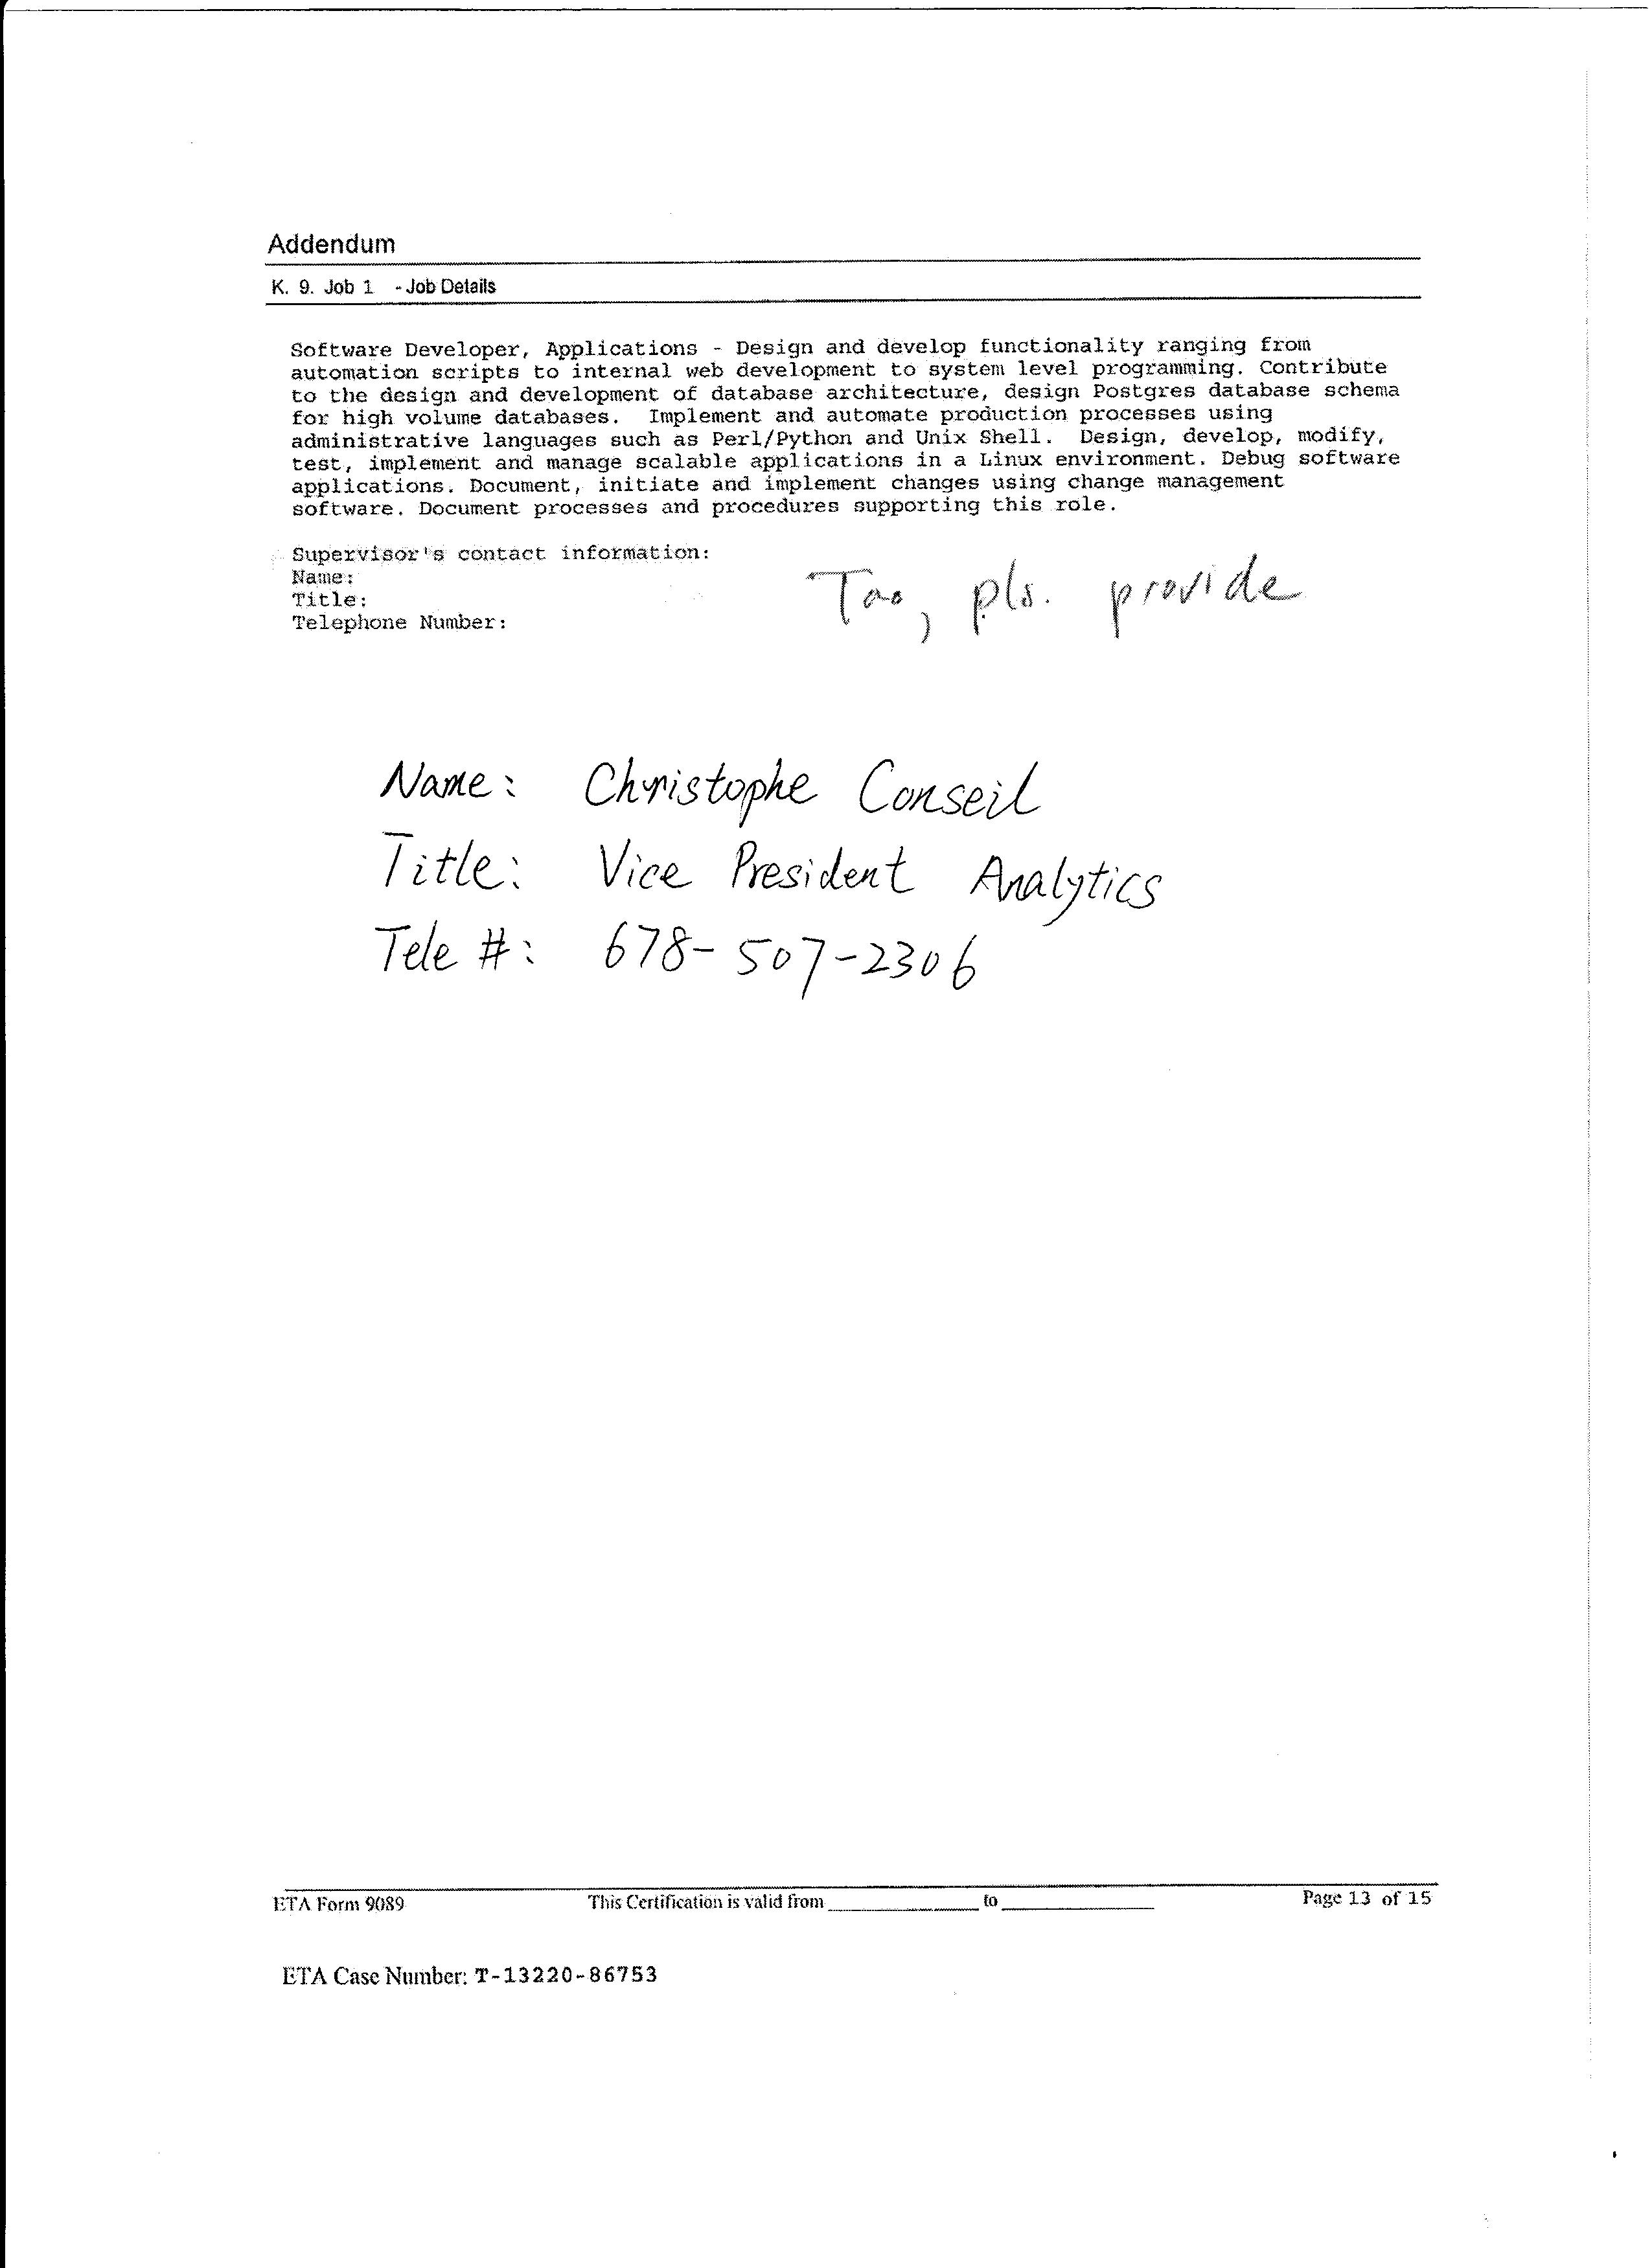 Addendum
K. 9. Job 1 - Job Details
Software Developer, Applications - Design and develop functionality ranging from
automation scripts to internal web development to system level programming. Contribute
to the design and development of database architecture, design Postgres database schema
for high volume databases. Implement and automate production processes using
administrative languages such as Perl/Python and Unix Shell. Design, develop, modify,
test, implement and manage scalable applications in a Linux environment. Debug software
applications. Document, initiate and implement changes using change management
software. Document processes and procedures supporting this role.
Supervisor's contact information:
Name:
Title:
Telephone Number:
Tao, pls. provide
Name: Christophe Conseil
Title: Vice President Analytics
Tele #: 678-507-2306
ETA Form 9089 This Certification is valid from ____________ to ____________ Page 13 of 15
ETA Case Number: T-13220-86753